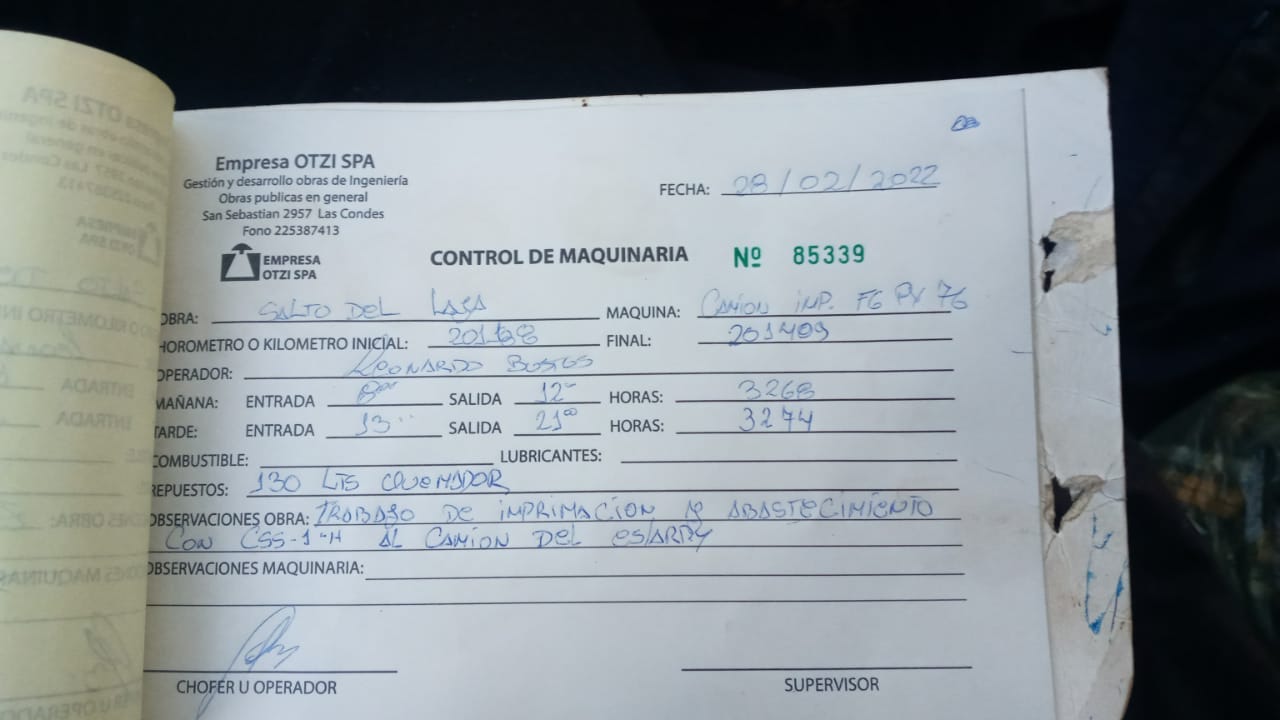 Empresa OTZI SPA
Gestión y desarrollo obras de Ingeniería
Obras publicas en general
San Sebastian 2957 Las Condes
Fono 225387413
EMPRESA
OTZI SPA
FECHA: 28/02/2022
CONTROL DE MAQUINARIA Nº 85339
OBRA: SALTO DEL LAJA MAQUINA: CAMION IMP. FG PX 76
HOROMETRO O KILOMETRO INICIAL: FINAL: 201409
OPERADOR: LEONARDO BUSTOS
MAÑANA: ENTRADA 8 SALIDA 12 HORAS: 3268
TARDE: ENTRADA 13 SALIDA 21 HORAS: 3274
COMBUSTIBLE: LUBRICANTES:
REPUESTOS: 130 LTS QUEMADOR
OBSERVACIONES OBRA: TRABAJO DE IMPRIMACION ABASTECIMIENTO
CON CSS-1-H AL CAMION DEL
OBSERVACIONES MAQUINARIA:
CHOFER U OPERADOR SUPERVISOR